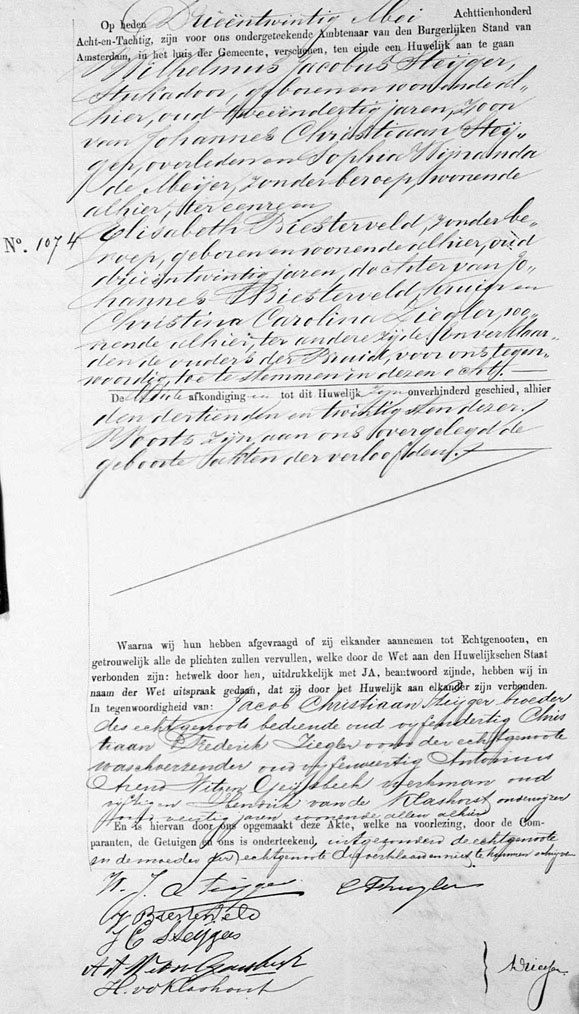 Op heden Drieëntwintig Mei Achttienhonderd
Acht-en-Tachtig, zijn voor ons ondergeteekende Ambtenaar van den Burgerlijken Stand van
Amsterdam, in het huis der Gemeente, verschenen, ten einde een Huwelijk aan te gaan
Wilhelmus Jacobus Steijger,
Stukadoor, geboren en wonende al-
hier, oud tweeëndertig jaren, Zoon
van Johannes Christiaan Steij-
ger, overleden en Sophia Wijnanda
de Meijer, zonder beroep, wonende
alhier, ter eenre en
No. 1074
Elisabeth Biesterveld, zonder be-
roep, geboren en wonende alhier, oud
drieëntwintig jaren, dochter van Jo-
hannes Biesterveld, kruier en
Christina Carolina Ziegler, wo-
nende alhier, ter andere zijde. En verklaar-
den de ouders der Bruid, voor ons tegen-
woordig, toe te stemmen in deze echt.
De afkondigingen tot dit Huwelijk zijn onverhinderd geschied, alhier
den dertienden en twintigsten dezer.
Voorts zijn aan ons overgelegd de
geboorte akten der verloofden.
Waarna wij hun hebben afgevraagd of zij elkander aannemen tot Echtgenooten, en
getrouwelijk alle de plichten zullen vervullen, welke door de Wet aan den Huwelijkschen Staat
verbonden zijn: hetwelk door hen, uitdrukkelijk met JA, beantwoord zijnde, hebben wij in
naam der Wet uitspraak gedaan, dat zij door het Huwelijk aan elkander zijn verbonden.
In tegenwoordigheid van: Jacob Christiaan Steijger broeder
des echtgenoots bediende oud vijfendertig Chris
tiaan Frederik Ziegler oom der echtgenoote
oud vijfenveertig Antonius
Arend Witzen Geijsbeek werkman oud
vijftig en Hendrik van de Klashorst onderwijzer
oud veertig jaren wonende allen alhier
En is hiervan door ons opgemaakt deze Akte, welke na voorlezing, door de Com-
paranten, de Getuigen en ons is onderteekend, uitgezonderd de echtgenoote
en de moeder der echtgenoote die verklaarden niet te kunnen schrijven
W. J. Steijger
C F Ziegler
J Biesterveld
J C Steijger
A A Witzen Geijsbeek
H. vd Klashorst